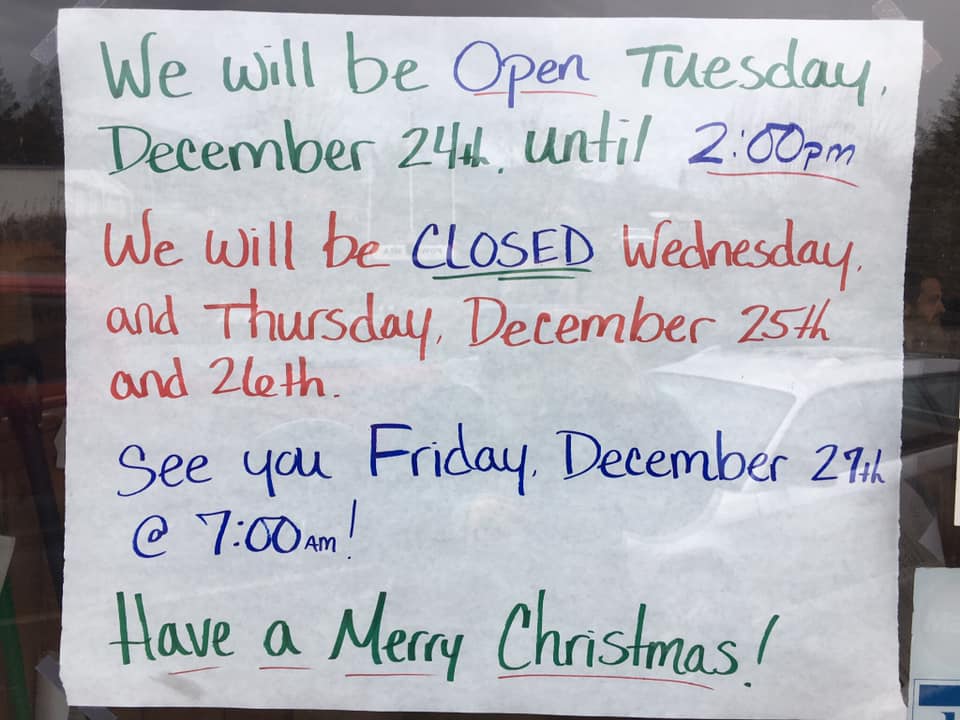 We will be Open Tuesday,
December 24th, until 2:00pm
We will be CLOSED Wednesday,
and Thursday, December 25th
and 26th.
See you Friday, December 27th
@ 7:00AM!
Have a Merry Christmas!